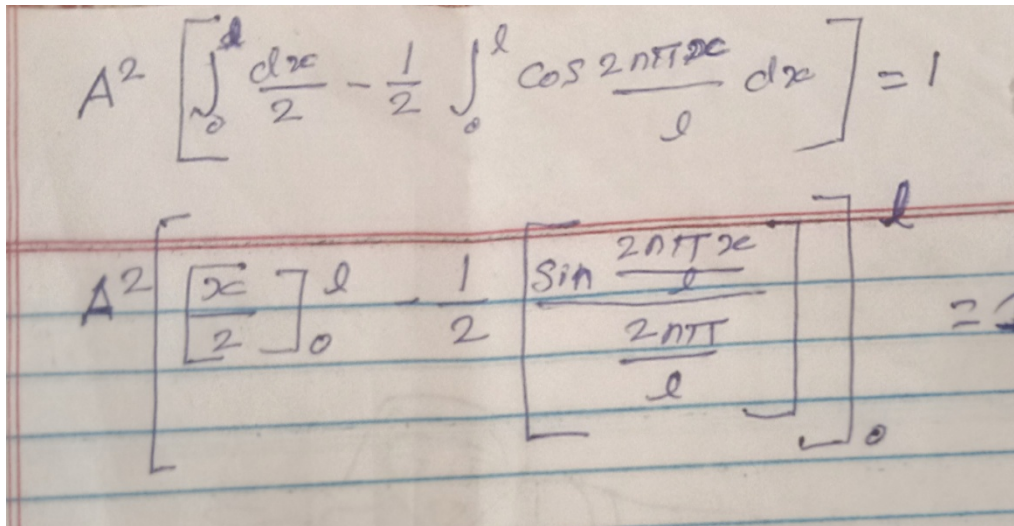 A² [ ∫₀ˡ dx/2 - 1/2 ∫₀ˡ cos 2nπx/l dx ] = 1
A² [ [x/2]₀ˡ - 1/2 [ sin 2nπx/l / 2nπ/l ] ]₀ˡ =